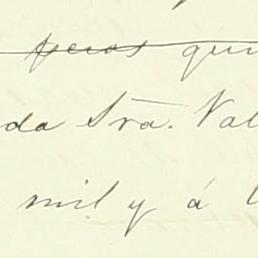 pesos qui
da Sra. Val
mil y á l